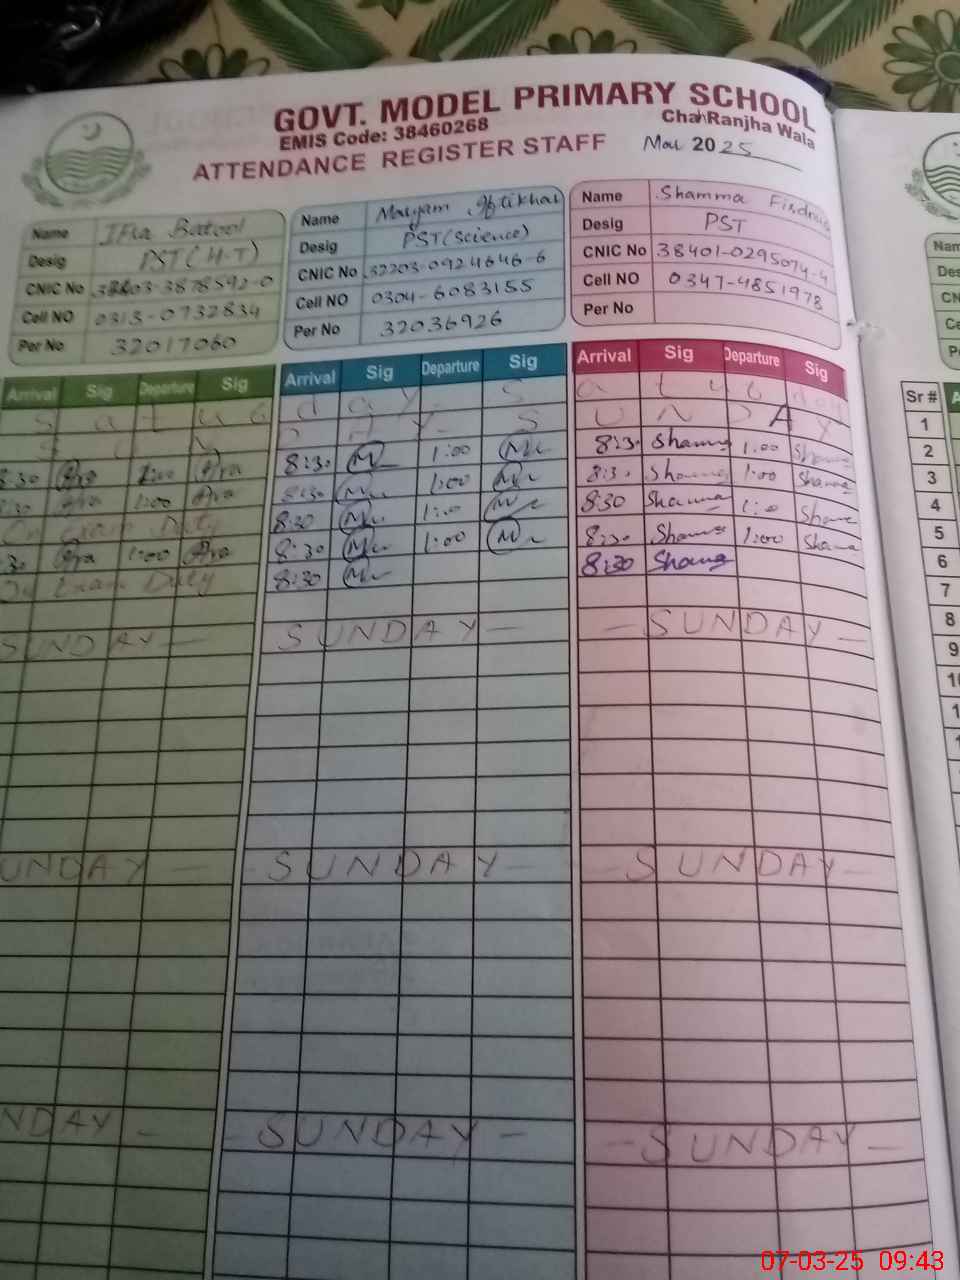 GOVT. MODEL PRIMARY SCHOOL
EMIS Code: 38460268
Chah Ranjha Wala
ATTENDANCE REGISTER STAFF
Mar 2025
Name Ifra Batool
Desig PST(H.T)
CNIC No
Cell NO 0313-0732834
Per No 32017060
Name Maryam Iftikhar
Desig PST(Science)
CNIC No 32203-0924646-6
Cell NO 0304-6083155
Per No 32036926
Name Shamma Firdous
Desig PST
CNIC No 38401-0295074-4
Cell NO 0347-4851978
Per No
Arrival Sig Departure Sig Arrival Sig Departure Sig Arrival Sig Departure Sig
S a t u r d a y S a t u r day
S U N D A Y S U N D A Y
8:30 1:00 8:30 1:00 8:30 Shama 1:00 Shama
8:30 1:00 8:30 1:00 8:30 Shama 1:00 Shama
On Exam Duty 8:30 1:00 8:30 Shama 1:00 Shama
8:30 1:00 8:30 1:00 8:30 Shama 1:00 Shama
On Exam Duty 8:30 8:30 Shama
SUNDAY — SUNDAY — — SUNDAY —
UNDAY — - SUNDAY - - SUNDAY —
NDAY - - SUNDAY - — SUNDAY —
Sr #
1
2
3
4
5
6
7
8
9
07-03-25 09:43